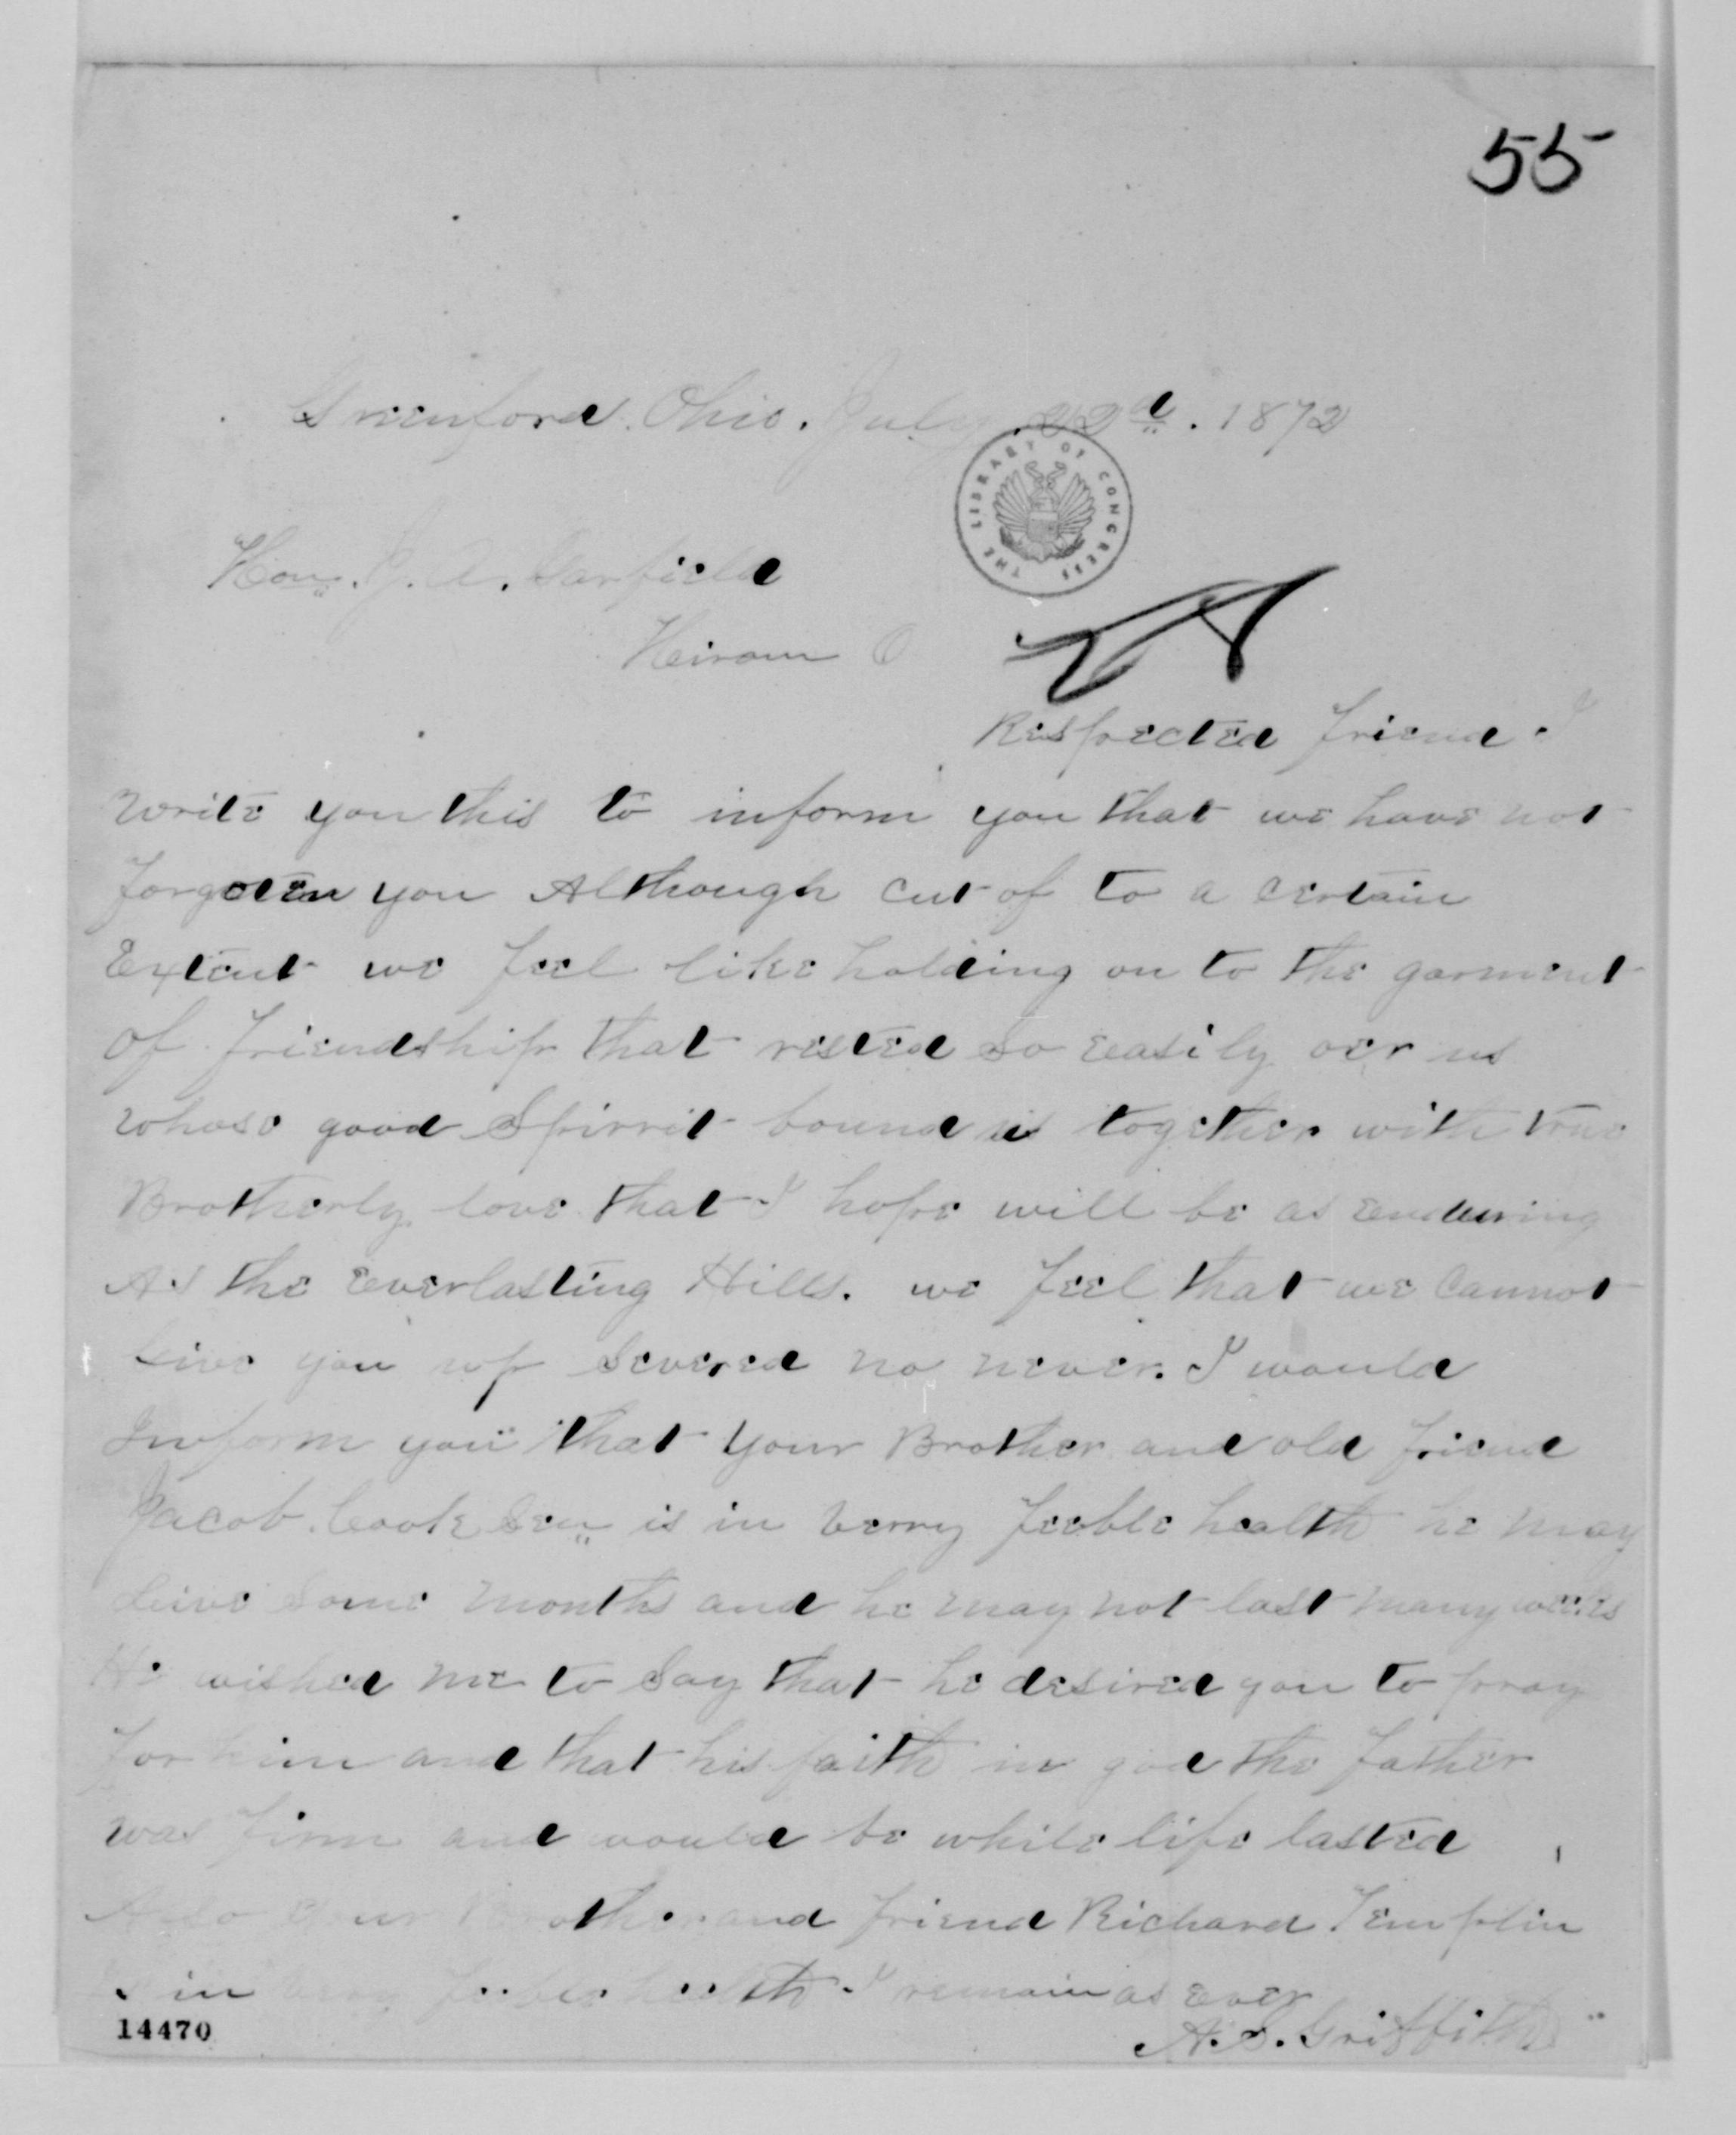 55
Greenford. Ohio. July. 22d. 1872
THE LIBRARY OF CONGRESS
Hon. J. A. Garfield
Heiram O
Respected Friend. I
write you this to inform you that we have not
forgoten you Although cut of to a certain
Extent we feel like holding on to the garment
of friendship that rested so Easily oer us
whose good Spirrit bound us together with true
Brotherly love that I hope will be as Enduring
As the Everlasting Hills. we feel that we Cannot
Give you up Severed no never. I would
Inform you that your Brother and old friend
Jacob. Cook Sen is in verry feeble health he may
Live Some months and he may not last many weeks
He wished me to Say that he desired you to pray
for him and that his faith in god the father
was firm and would be while life lasted
Also your Brother and friend Richard Templin
is in very feeble health. I remain as Ever
A. S. Griffith
14470